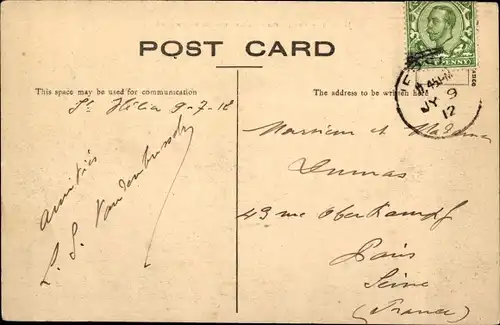 POST CARD
This space may be used for communication
St Hélier 9-7-12
amitiés
The address to be written here
Monsieur et Madame
Dumas
43 rue Oberkampf
Paris
Seine
(France)
PENNY
JY 9
12